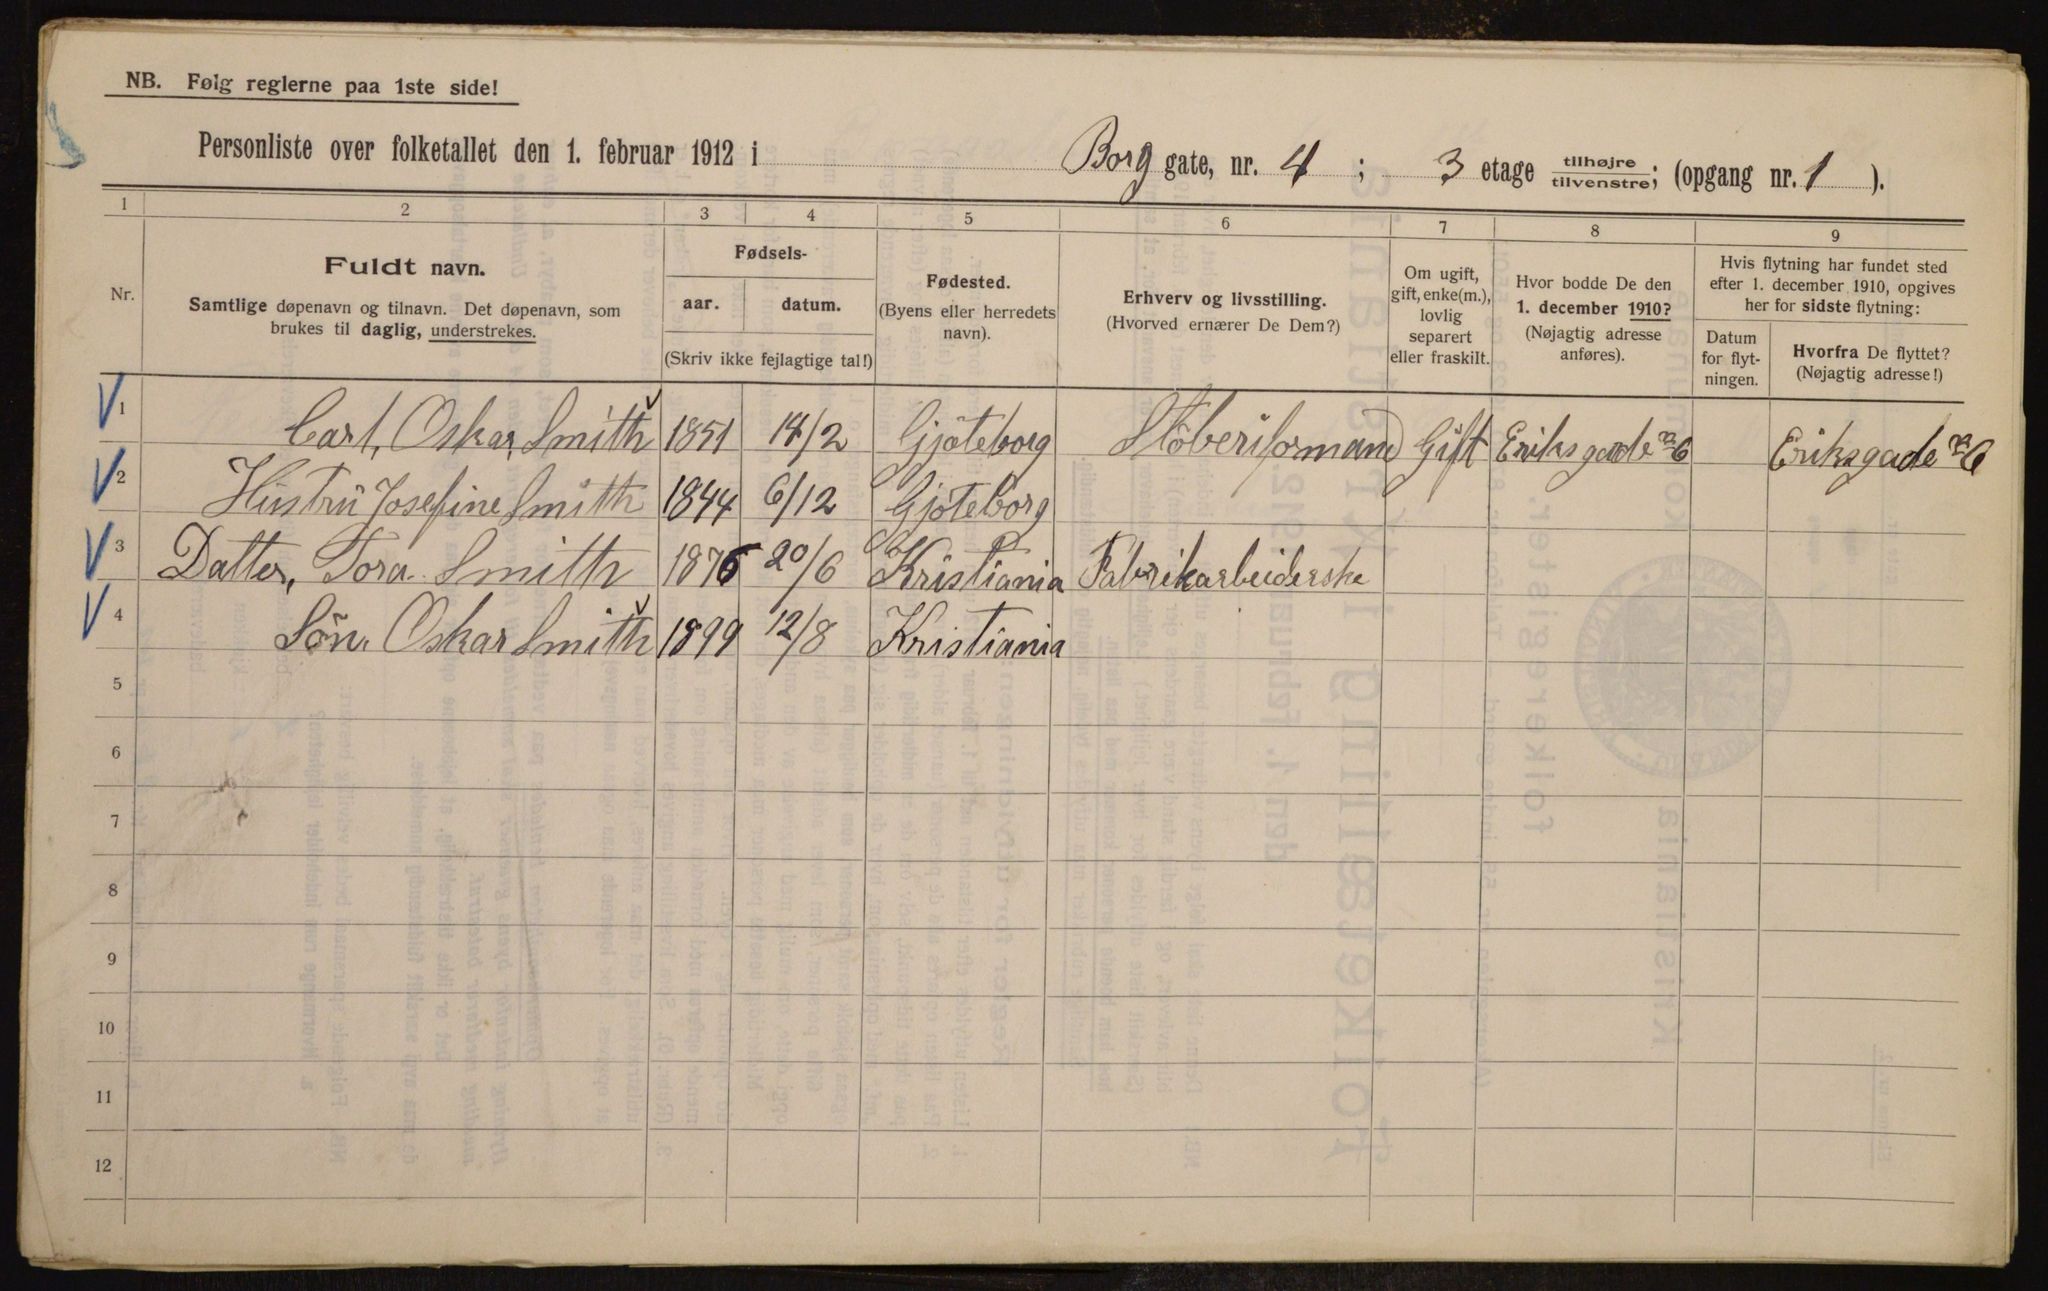 NB. Følg reglerne paa 1ste side!
Personliste over folketallet den 1. februar 1912 i Borg gate, nr. 4 ; 3 etage tilhøjre/tilvenstre; (opgang nr. 1 ).
1 2 3 4 5 6 7 8 9
Nr.
Fuldt navn.
Samtlige døpenavn og tilnavn. Det døpenavn, som
brukes til daglig, understrekes.
Fødsels-
aar. datum.
(Skriv ikke fejlagtige tal!)
Fødested.
(Byens eller herredets
navn).
Erhverv og livsstilling.
(Hvorved ernærer De Dem?)
Om ugift,
gift, enke(m.),
lovlig
separert
eller fraskilt.
Hvor bodde De den
1. december 1910?
(Nøjagtig adresse
anføres).
Hvis flytning har fundet sted
efter 1. december 1910, opgives
her for sidste flytning:
Datum
for flyt-
ningen.
Hvorfra De flyttet?
(Nøjagtig adresse!)
1 Carl, Oskar, Smith 1851 14/2 Gjöteborg Stöberiformand Gift Eriksgade No 6 Eriksgade No 6
2 Hustru Josefine Smith 1844 6/12 Gjöteborg
3 Datter, Tora Smith 1876 20/6 Kristiania Fabrikarbeiderske
4 Sön Oskar Smith 1899 12/8 Kristiania
5
6
7
8
9
10
11
12